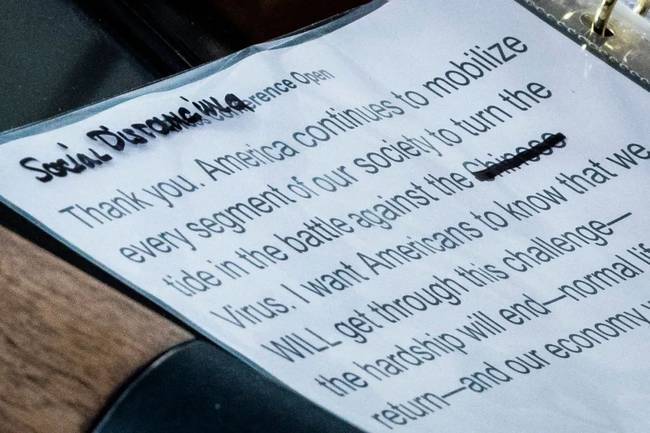 Social Distancing erence Open
Thank you. America continues to mobilize
every segment of our society to turn the
tide in the battle against the
Virus. I want Americans to know that we
WILL get through this challenge—
the hardship will end—normal lif
return—and our economy